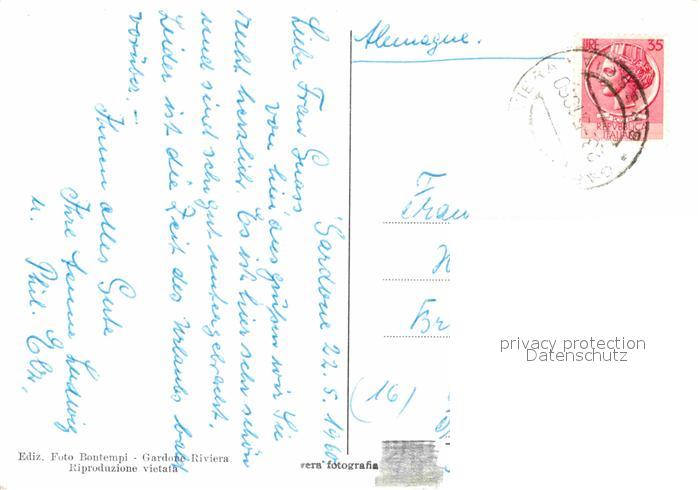 Gardone 22.5.1960
Liebe Frau
Von hier aus grüßen wir Sie
recht herzlich. Es ist hier sehr schön
und sind sehr gut untergebracht.
Leider ist die Zeit des Urlaubs bald
vorüber. –
Ihnen alles Gute
Ihre Ludwig
u. Phil.
Alemagne.
LIRE 35
REPVBBLICA
ITALIANA
RIVIERA
Frau
(16)
privacy protection
Datenschutz
Ediz. Foto Bontempi - Gardone Riviera
Riproduzione vietata
vera fotografia